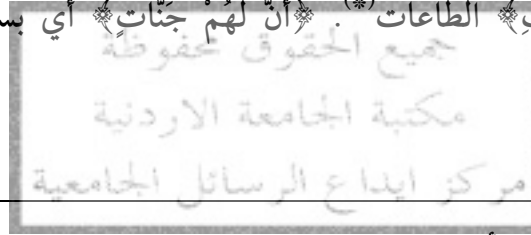 ـتِ﴾ الطاعات(*). ﴿أَنَّ لَهُمْ جَنَّاتٍ﴾ أي بسـ
جميع الحقوق محفوظة
مكتبة الجامعة الاردنية
مركز ايداع الرسائل الجامعية